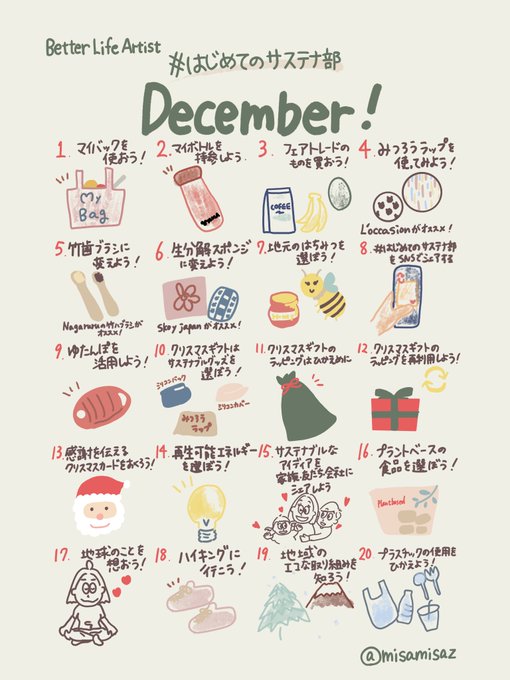 Better Life Artist
#はじめてのサステナ部
December!
1. マイバックを
使おう!
My
Bag
2. マイボトルを
持参しよう.
3. フェアトレードの
ものを買おう!
COFEE
4. みつろうラップを
使ってみよう!
L'occasionがオススメ!
5. 竹歯ブラシに
変えよう!
Nagararuの竹ハブラシが
オススメ!
6. 生分解スポンジ
に変えよう!
Skoy japanがオススメ!
7. 地元のはちみつを
選ぼう!
8. #はじめてのサステナ部
をSNSでシェアする
9. ゆたんぽを
活用しよう!
10. クリスマスギフトは
サステナブルグッズを
選ぼう!
シリコンバック
シリコンカバー
みつろう
ラップ
11. クリスマスギフトの
ラッピングはひかえめに
12. クリスマスギフトの
ラッピングを再利用しよう!
13. 感謝を伝える
クリスマスカードをおくろう!
14. 再生可能エネルギー
を選ぼう!
15. サステナブルな
アイディアを
家族・友だち・会社に
シェアしよう
16. プラントベースの
食品を選ぼう!
Plantbased
17. 地球のことを
想おう!
18. ハイキングに
行こう!
19. 地域の
エコな取り組みを
知ろう!
20. プラスチックの使用を
ひかえよう!
@misamisaz